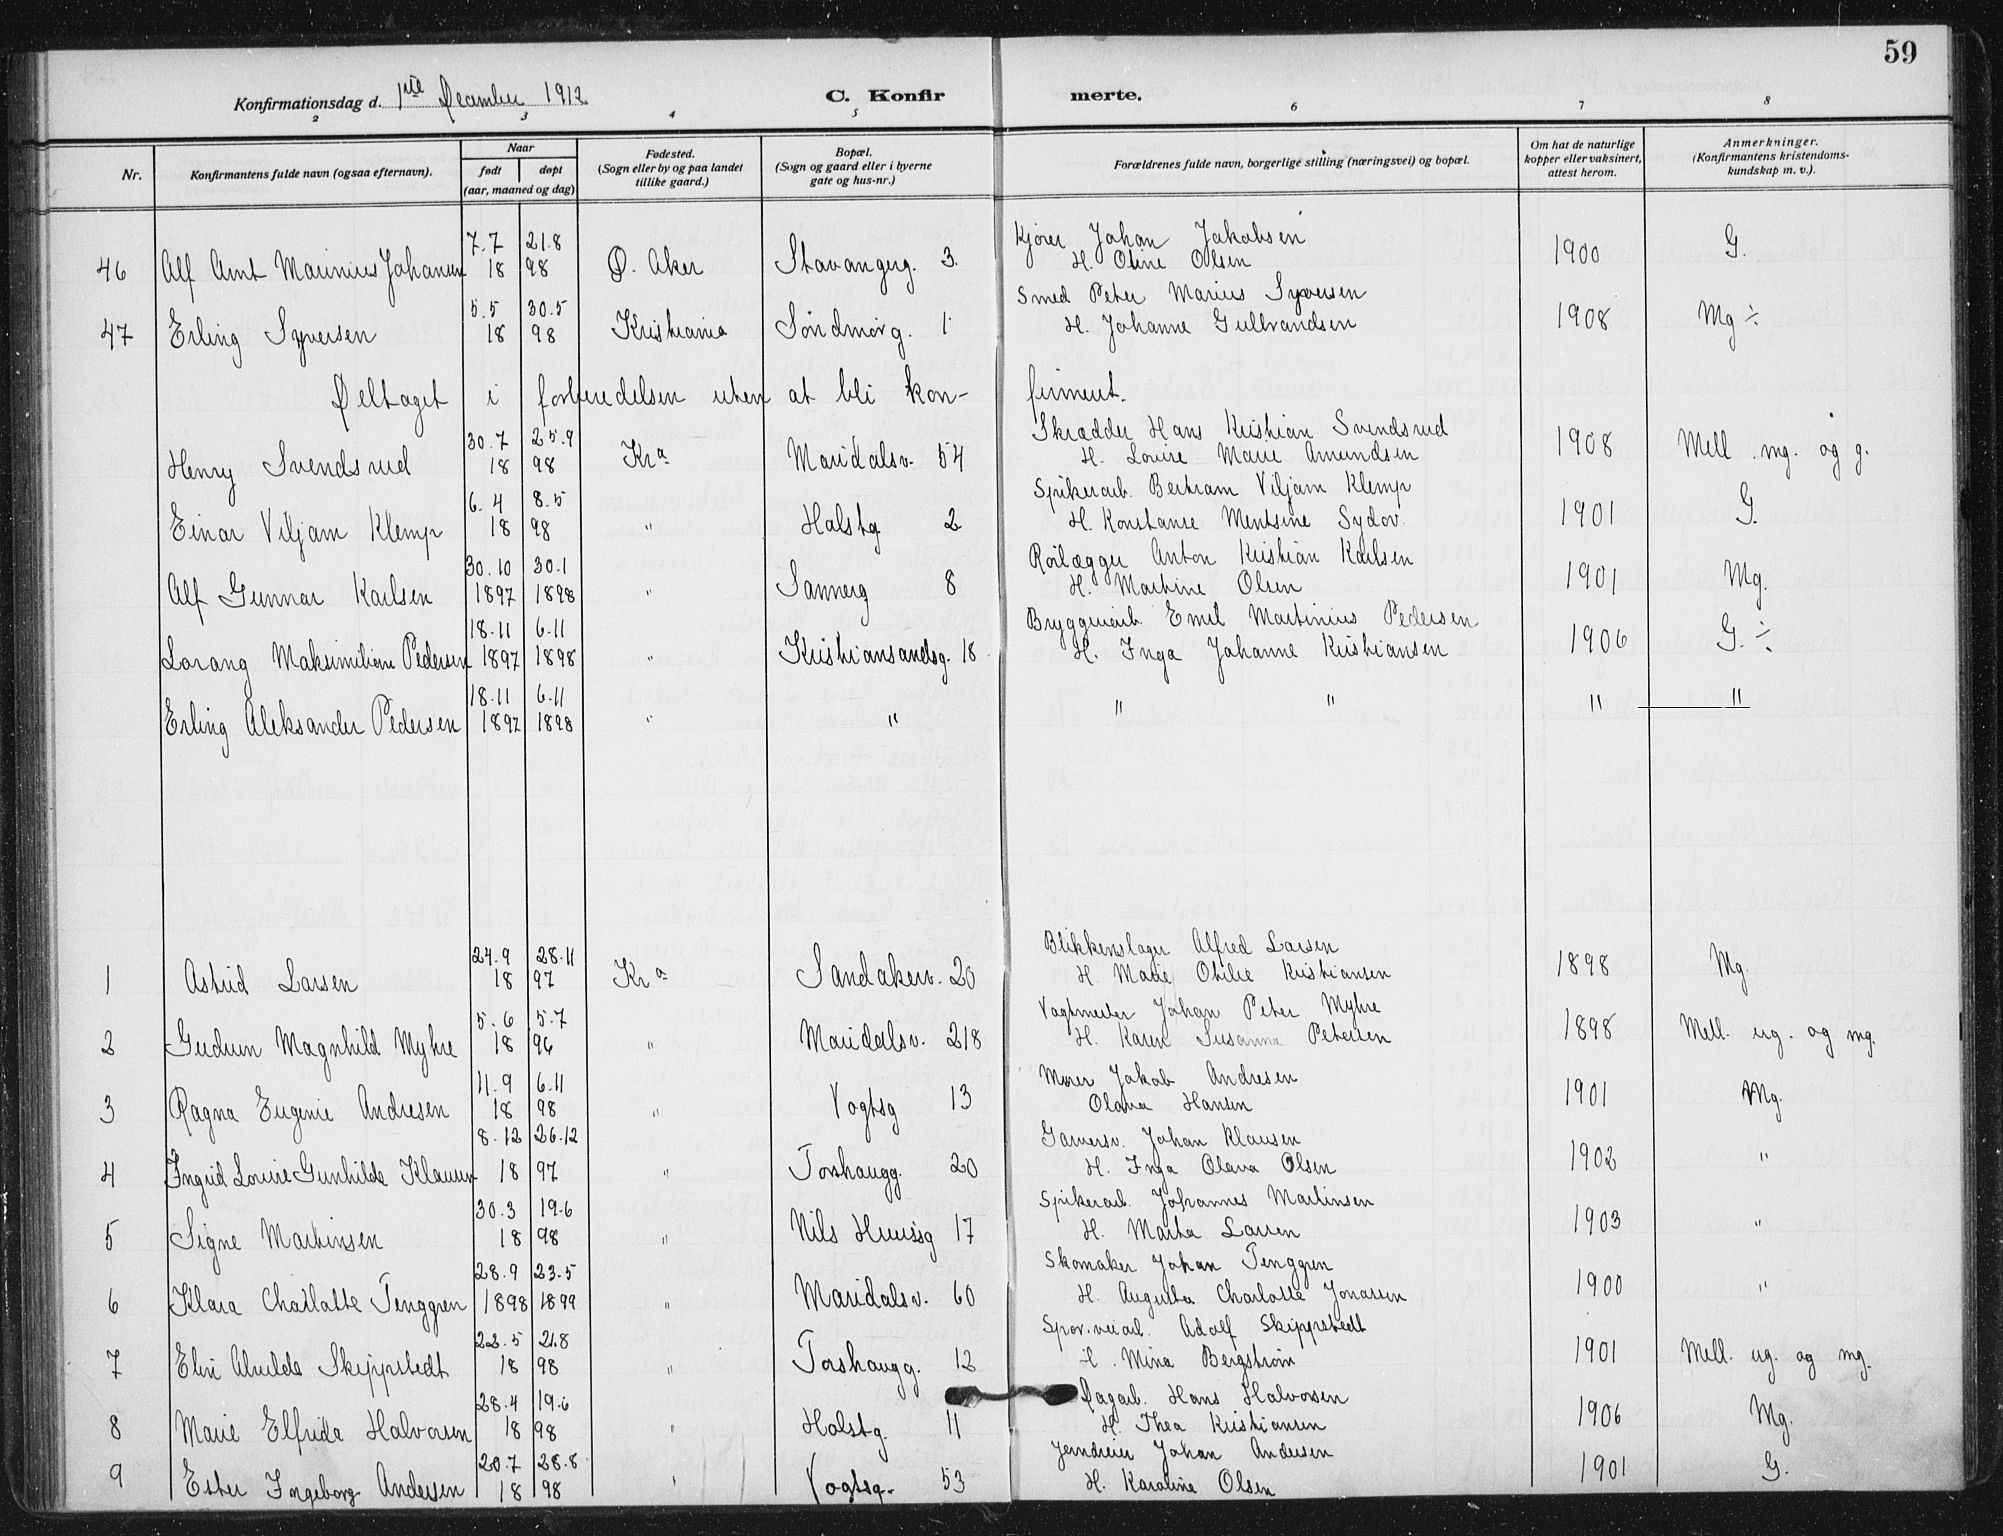 59
Konfirmationsdag d. 1ste December 1912 C. Konfirmerte.
2 3 4 5 6 7 8
Nr. Konfirmantens fulde navn (ogsaa efternavn). Naar født døpt (aar, maaned og dag) Fødested. (Sogn eller by og paa landet tillike gaard.) Bopæl. (Sogn og gaard eller i byerne gate og hus-nr.) Forældrenes fulde navn, borgerlige stilling (næringsvei) og bopæl. Om hat de naturlige kopper eller vaksinert, attest herom. Anmerkninger. (Konfirmantens kristendoms-kundskap m. v.).
7.7 21.8 Kjører Johan Jakobsen
46 Alf Arnt Marinius Johansen 18 98 Ø. Aker Stavangerg. 3. H. Oline Olsen 1900 G.
5.5 30.5 Smed Peter Marius Syversen
47 Erling Syversen 18 98 Kristiania Søndmørg. 1 H. Johanne Gulbrandsen 1908 Mg ÷
Deltaget i forberedelsen uten at bli konfirmert.
30.7 25.9 Skrædder Hans Kristian Svendsrud
Henry Svendsrud 18 98 Kra Maridalsv. 54 H. Louise Marie Amundsen 1908 Mell. mg. og g.
6.4 8.5 Spikerarb. Bertram Viljam Klemp
Einar Viljam Klemp 18 98 " Holstg. 2 H. Konstanse Mentsine Sydov. 1901 G.
30.10 30.1 Rørlægger Anton Kristian Karlsen
Alf Gunnar Karlsen 1897 1898 " Sannerg 8 H. Martine Olsen 1901 Mg.
18.11 6.11 Bryggeriarb. Emil Martinius Pedersen
Lorang Maksimilian Pedersen 1897 1898 " Kristiansandsg. 18 H. Inga Johanne Kristiansen 1906 G. ÷
18.11 6.11
Erling Aleksander Pedersen 1897 1898 " " " " " "
24.9 28.11 Blikkenslager Alfred Larsen
1 Astrid Larsen 18 97 Kra Sandakerv. 20 H. Marie Otilie Kristiansen 1898 Mg.
5.6 5.7 Vagtmester Johan Peter Myhre
2 Gudrun Magnhild Myhre 18 96 " Maridalsv. 218 H. Karen Susanna Petersen 1898 Mell. ug. og mg.
11.9 6.11 Murer Jakob Andresen
3 Ragna Eugenie Andresen 18 98 " Vogtsg 13 Olava Hansen 1901 Mg.
8.12 26.12 Garversv. Johan Klausen
4 Ingrid Louise Gunhilde Klausen 18 97 " Torshaugg. 20 H. Inga Olava Olsen 1902 "
30.3 19.6 Spikerarb. Johannes Martinsen
5 Signe Martinsen 18 98 " Nils Huusg 17 H. Marta Larsen 1903 "
28.9 23.5 Skomaker Johan Tenggren
6 Klara Charlotte Tenggren 1898 1899 " Maridalsv. 60 H. Augusta Charlotte Jonassen 1900 "
22.5 21.8 Spor.veiarb. Adolf Skippstedt
7 Elvi Alvilde Skippstedt 18 98 " Torshaugg. 12 H. Mina Bergstrøm 1901 Mell. ug. og mg.
28.4 19.6 Dagarb. Hans Halvorsen
8 Marie Elfrida Halvorsen 18 98 " Holstg. 11 H. Thea Kristiansen 1906 Mg.
20.7 28.8 Jerndreier Johan Andersen
9 Ester Ingeborg Andersen 18 98 " Vogtsg. 53 H. Karoline Olsen 1901 G.